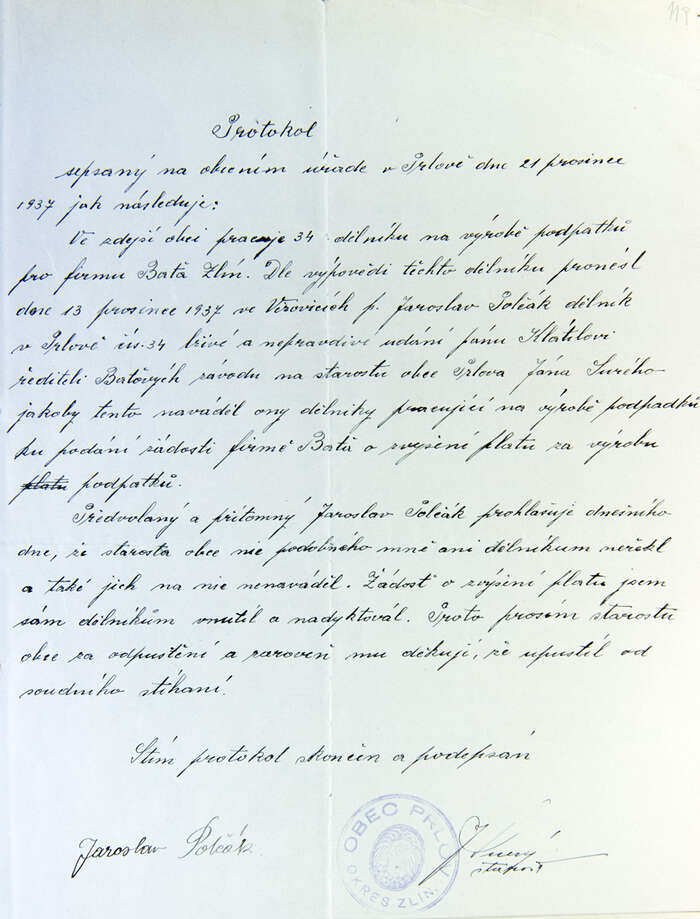 119
Protokol
sepsaný na obecním úřade v Prlově dne 21 prosince
1937 jak následuje:
Ve zdejší obci pracuje 34 dělníku na výrobě podpatků
pro firmu Baťa Zlín. Dle výpovědi těchto dělníku pronésl
dne 13 prosince 1937 ve Vizovicích p. Jaroslav Polčák dělník
v Prlově čís. 34 lživé a nepravdivé udání pánu Klátilovi
řediteli Baťových závodu na starostu obce Prlova Jána Surého
jakoby tento naváděl ony dělníky pracující na výrobě podpadků
ku podání žádosti firmě Baťa o zvýšení platu za výrobu
platu podpatků.
Předvolaný a přítomný Jaroslav Polčák prohlašuje dnešního
dne, že starosta obce nic podobného mně ani dělníkum neřekl
a také jich na nic nenaváděl. Žádosť o zvýšení platu jsem
sám dělníkům vnutil a nadyktovál. Proto prosím starostu
obce za odpuštění a zaroveň mu děkuji, že upustil od
soudního stíhaní.
Stím protokol skončen a podepsán
Jaroslav Polčák.
OBEC PRLOV
OKRES ZLÍN.
J Surý
starosta